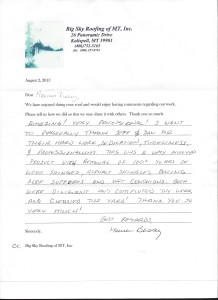 Big Sky Roofing of MT, Inc.
26 Panoramic Drive
Kalispell, MT 59901
August 2, 2013
Dear
We have enjoyed doing your roof and would enjoy hearing comments regarding our work.
Please tell us how we did so that we may share it with others. Thank you so much
AMAZING! VERY PROFESSIONAL! I WANT
TO PERSONALLY THANK JEFF & DAN FOR
THEIR HARD WORK, DEDICATION, THOROUGHNESS,
& PROFESSIONALISM. THIS WAS A VERY INVOLVED
PROJECT WITH REMOVAL OF 100+ YEARS OF
WOOD SHINGLES, ASPHALT SHINGLES,
ROOF SURFACES AND HOT CONDITIONS. BOTH
WERE DILIGENT AND COMPLETED THE WORK
AND CLEANED THE YARD! THANK YOU SO
VERY MUCH!
BEST REGARDS
Sincerely,
CC: Big Sky Roofing of MT, Inc.